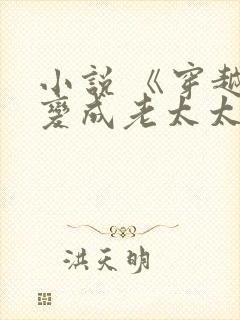 小说《穿越
变成老太太
洪天明